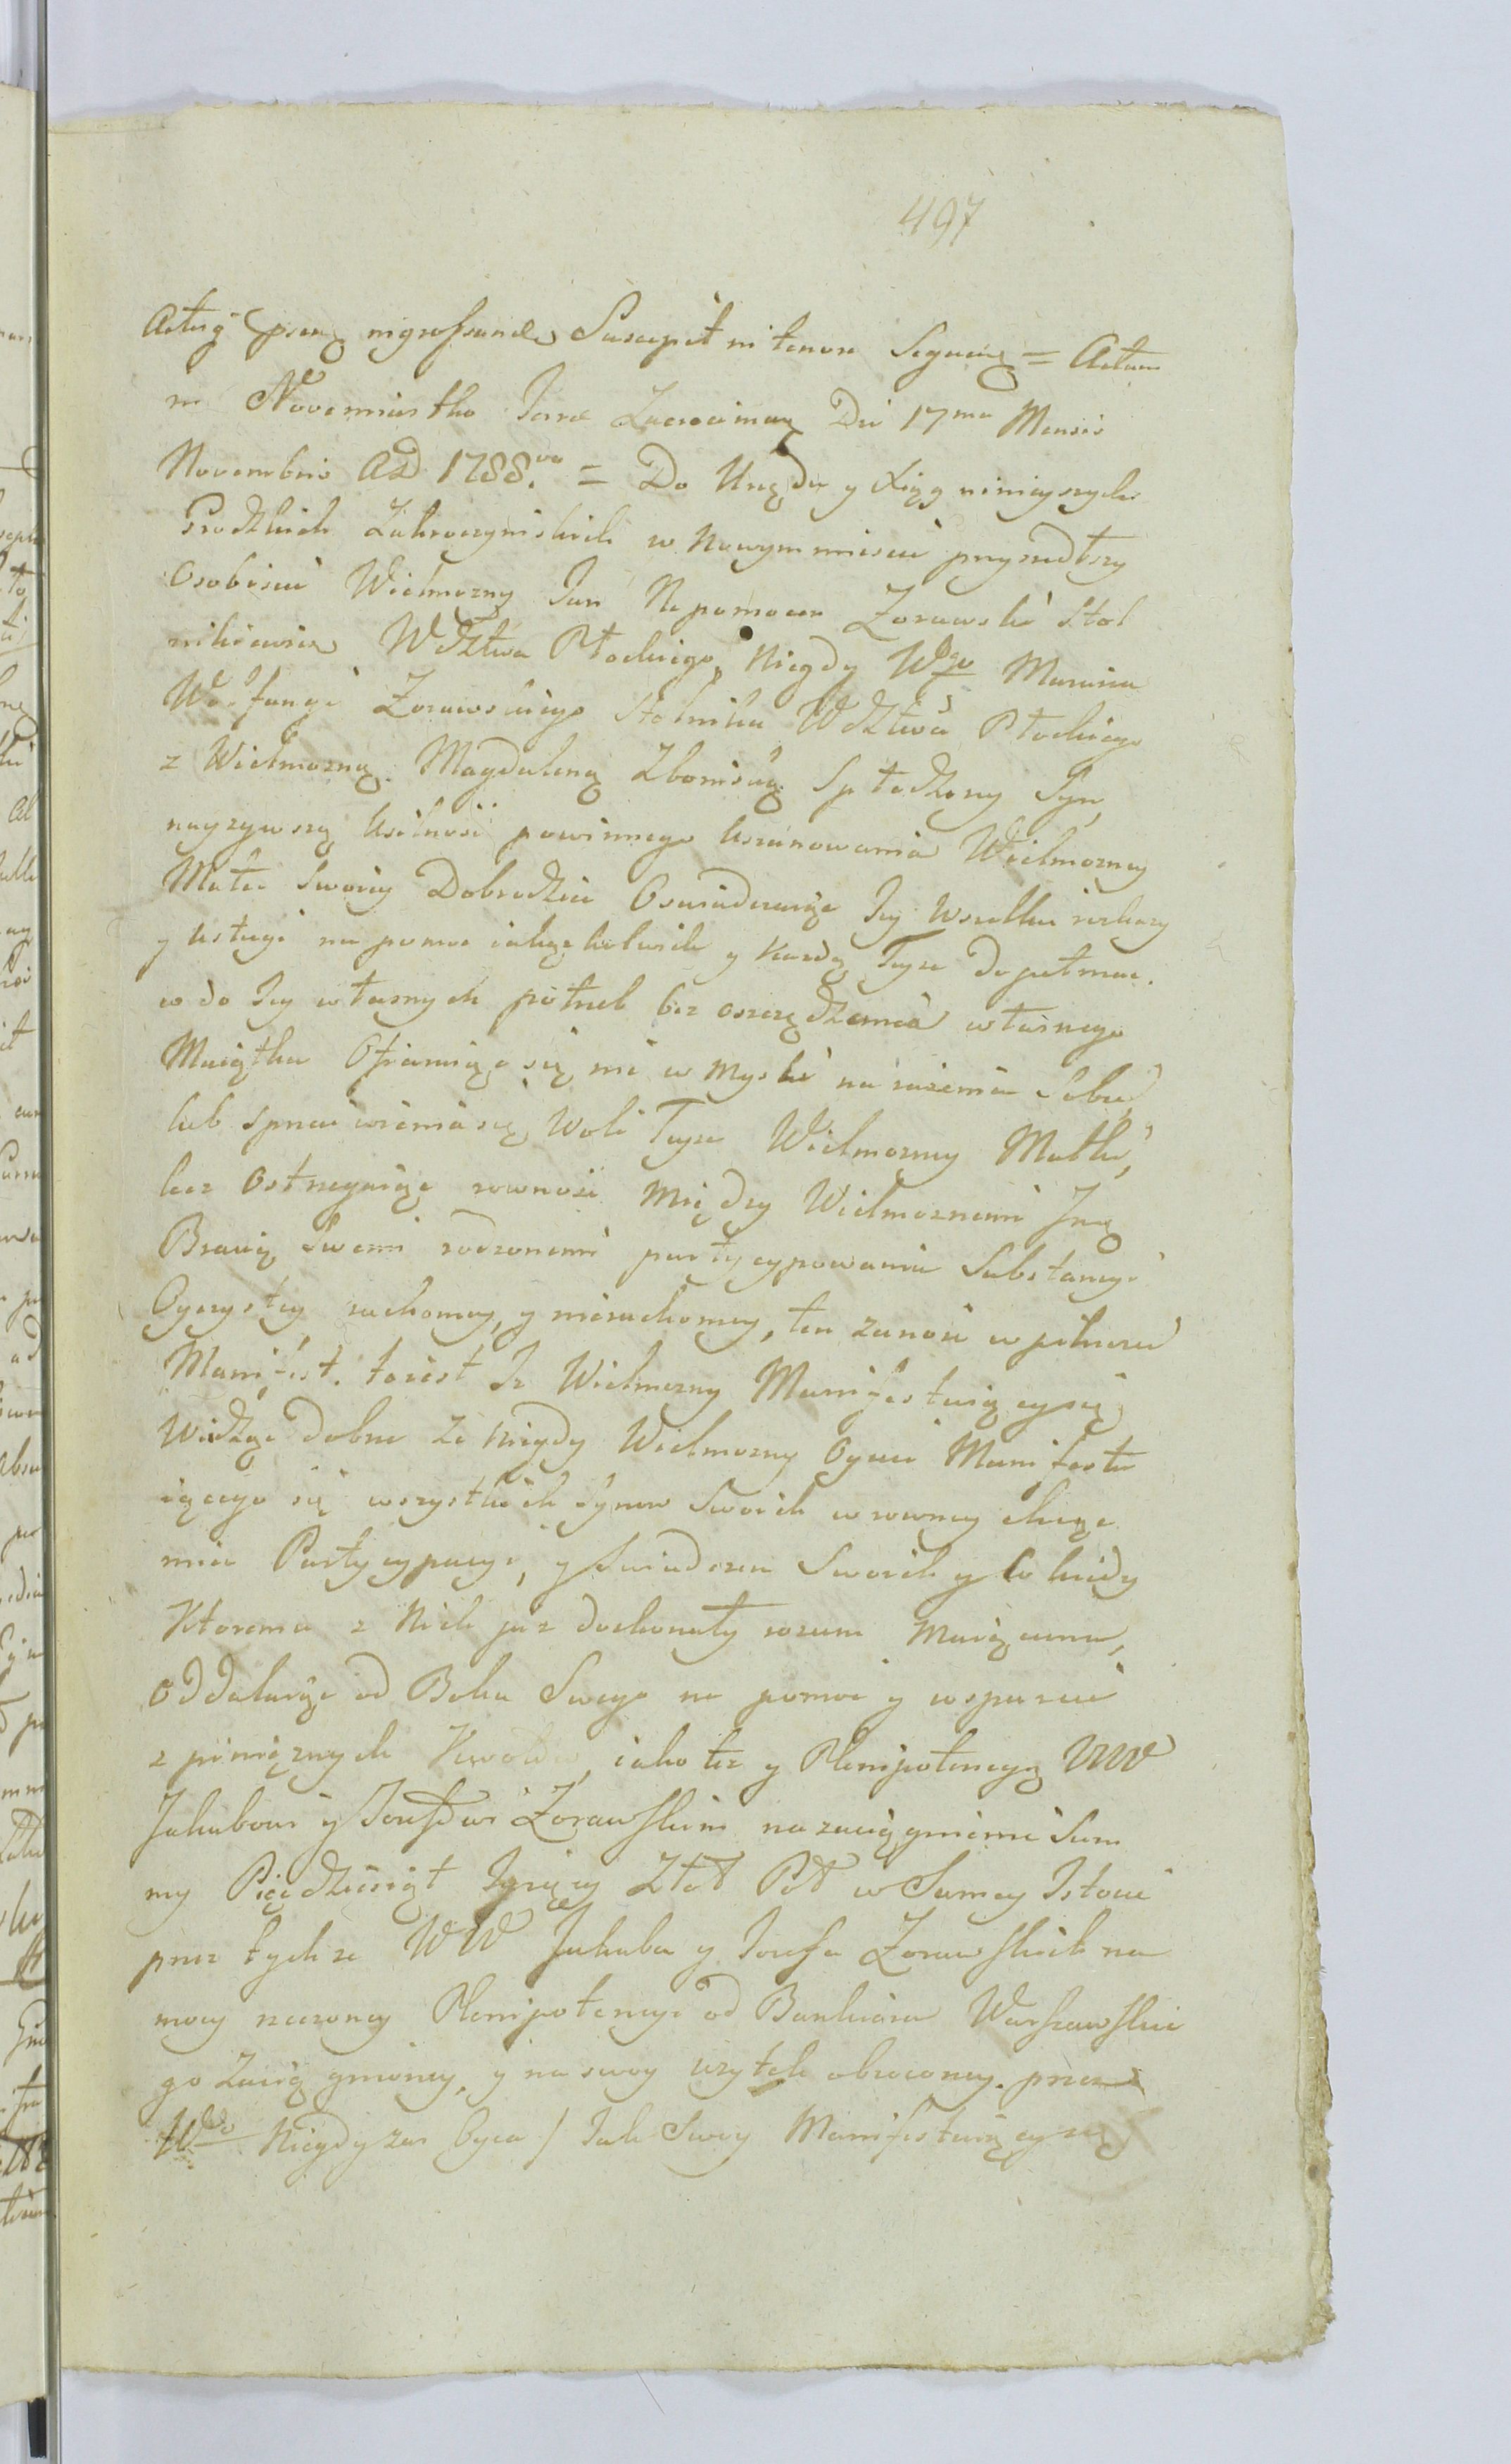 497
Actisq̃ ingrossand Suscepit in tenore Sequen = Actum
in Novomiastho Terrae Zacrocimen Die 17ma Mensis
Novembris AD 1788.vo = Do Urzędu y Xiąg ninieyszych
Grodzkich Zakroczymskich w Nowymmiescie przyszedłszy
Osobiscie Wielmozny Jan Nepomocen Zorawski Stol
nikiewicz Wdztwa Płockiego, Niegdy Wgo Marcina
Zorawskiego Stolnika Wdztwa Płockiego
z Wielmozną Magdaleną Spłodzony Syn,
nayzywszą Usilnosć powinnego Uszanowania Wielmozney
Matce Swoiey Dobrodzice Oswiadczaiąc Jey Wszelkie rozkazy
y Usługi na pomoc iakążkolwiek y Kazdą Teyze dopełniac.
w do Jey własnych potrzeb bez oszczędzenia własnego
Maiątku Ofiaruiąc się nie w mysli narazenia Sobie,
lub sprzeciwienia się Woli Teyze Wielmozney Matki,
lecz Ostrzegaiąc rownosć między Wielmoznemi
Bracią Swemi rodzonemi partycypowania Substancyi
Oyczystey ruchomey, y nieruchomey, ten zanosi w pokorze
Manifest. toiest Iz Wielmozny Manifestuiący się
Widząc dobrze ze Niegdy Wielmozny Oyciec Manifestu
iącego się wszystkich Synow Swoich w rowney chcąc
miec Partycypacyi, y Swiadczen Swoich y
Ktoremu z Nich juz doskonały rozum Maiącemu,
oddalaiąc od Boku Swego na pomoc y wsparcie
z pienięznych Kwotow, iako tez y Plenipotencyą WW
Jakubowi y Jozefowi Zorawskim na zaciągnienie Sum
my Pięcdziesiąt Tysięcy Złot Pol w Samey Istocie
przez tychze WW Jakuba y Jozefa Zorawskich na
mocy rzeczoney Plenipotencyi od Bankiera Warszawskie
go Zaciągnioney, y na swoy uzytek obroconey. przez
Wgo Niegdy zas Oyca / Tak Swey Manifestuiący się